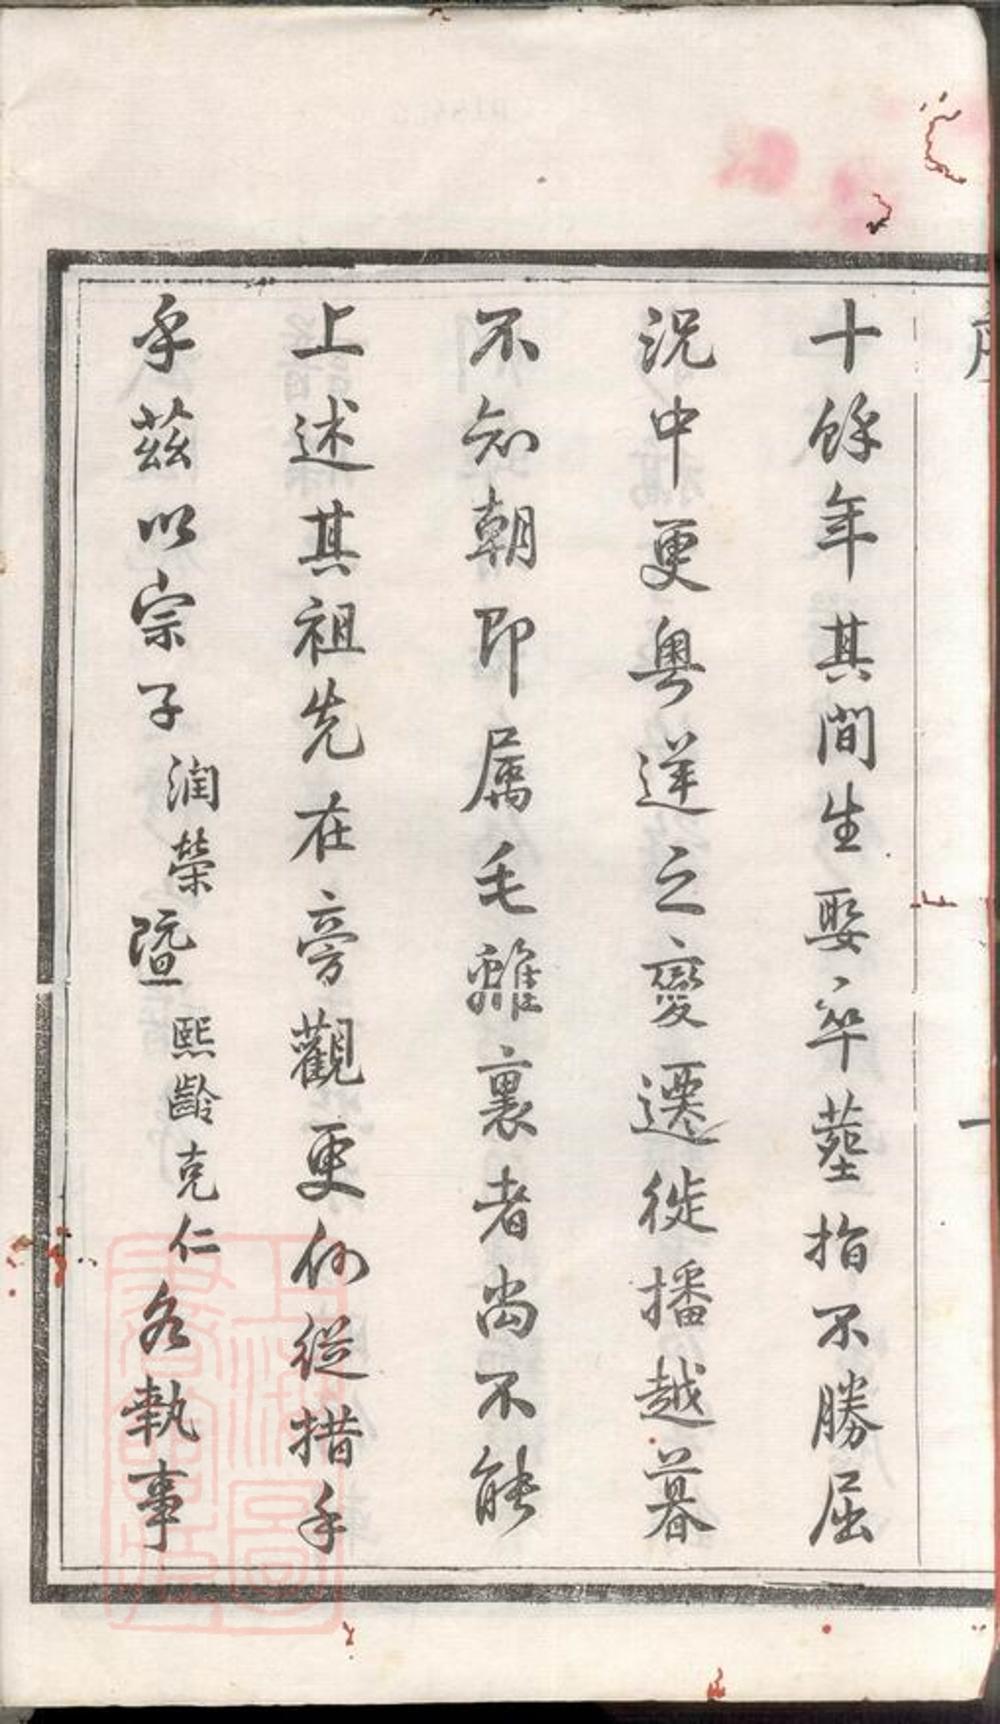 十餘年其間生娶卒塟指不勝屈
況中更粵逆之變遷徙播越暮
不知朝即属毛離裏者尚不能
上述其祖先在旁觀更何從措手
乎茲以宗子潤榮暨熙齡克仁各執事
上海圖書館藏